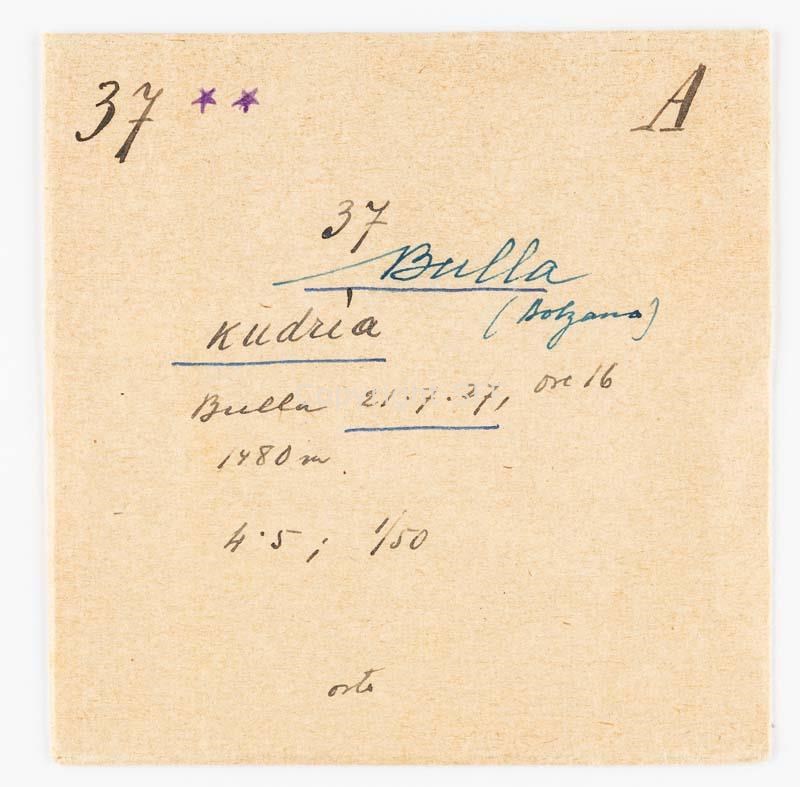 37 ** A
37
Bulla
(Bolzano)
Kudria
Bulla 21.7.27, ore 16
1480 m
4.5; 1/50
orto